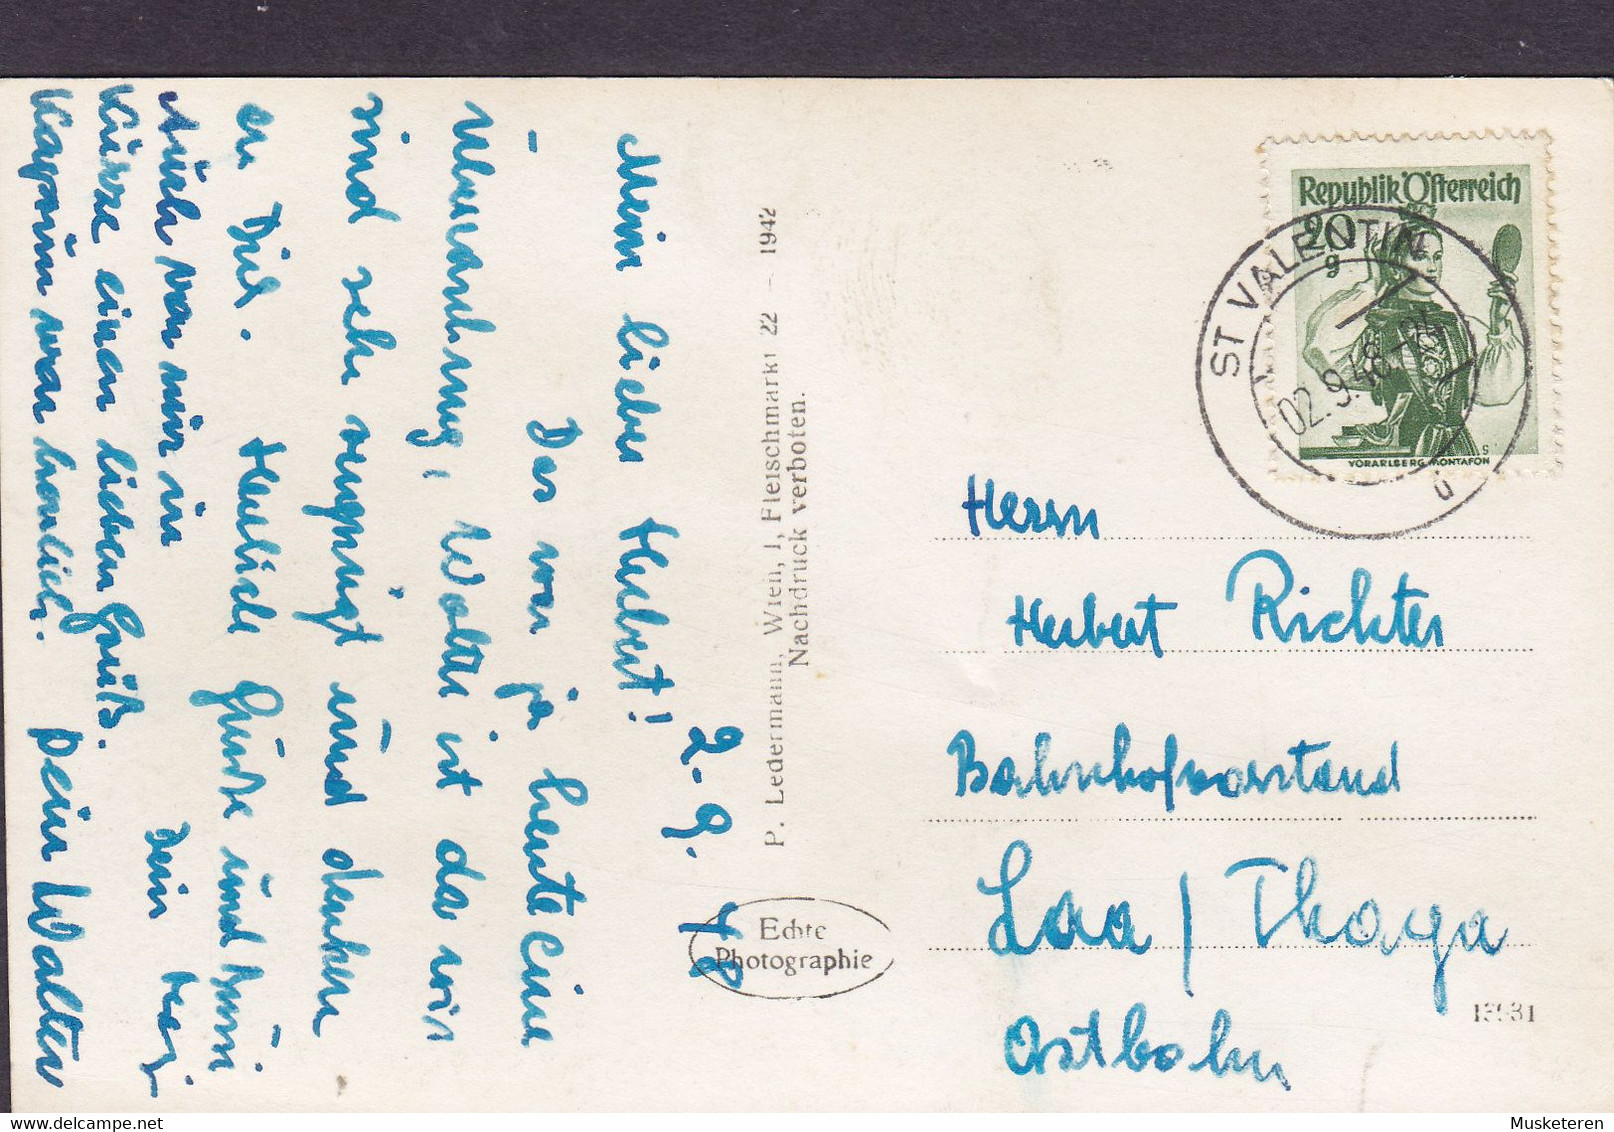 2. 9. 48
Mein lieber Herbert!
Das war ja heute eine
- Überraschung, Walter ist da wir
sind sehr vergnügt und denken
an Dich. Herzliche Grüße und
Auch von mir in
Kürze einen lieben Gruß.
Dein
war herrlich. Dein Walter
P. Ledermann, Wien, I, Fleischmarkt 22 – 1942
Nachdruck verboten.
Echte
Photographie
Republik Österreich
20
g
VORARLBERG, MONTAFON
ST VALENTIN
02.9.48
Herrn
Herbert Richter
Bahnhofvorstand
Laa / Thaya
Ostbahn
13931
Musketeren